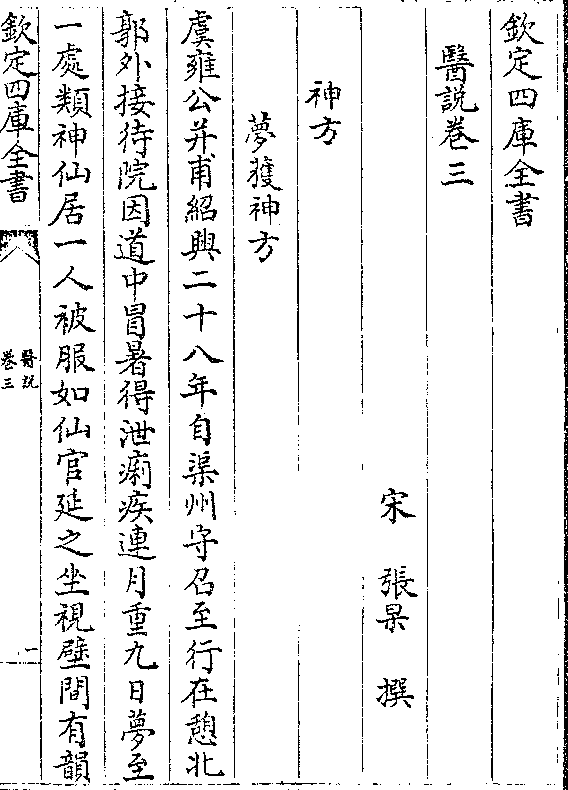 欽定四庫全書
醫説卷三
宋 張杲 撰
神方
夢獲神方
虞雍公并甫紹興二十八年自渠州守召至行在憩北
郭外接待院因道中冒暑得泄痢疾連月重九日夢至
一處類神仙居一人被服如仙官延之坐視壁間有韻
欽定四庫全書
醫説
卷三
一